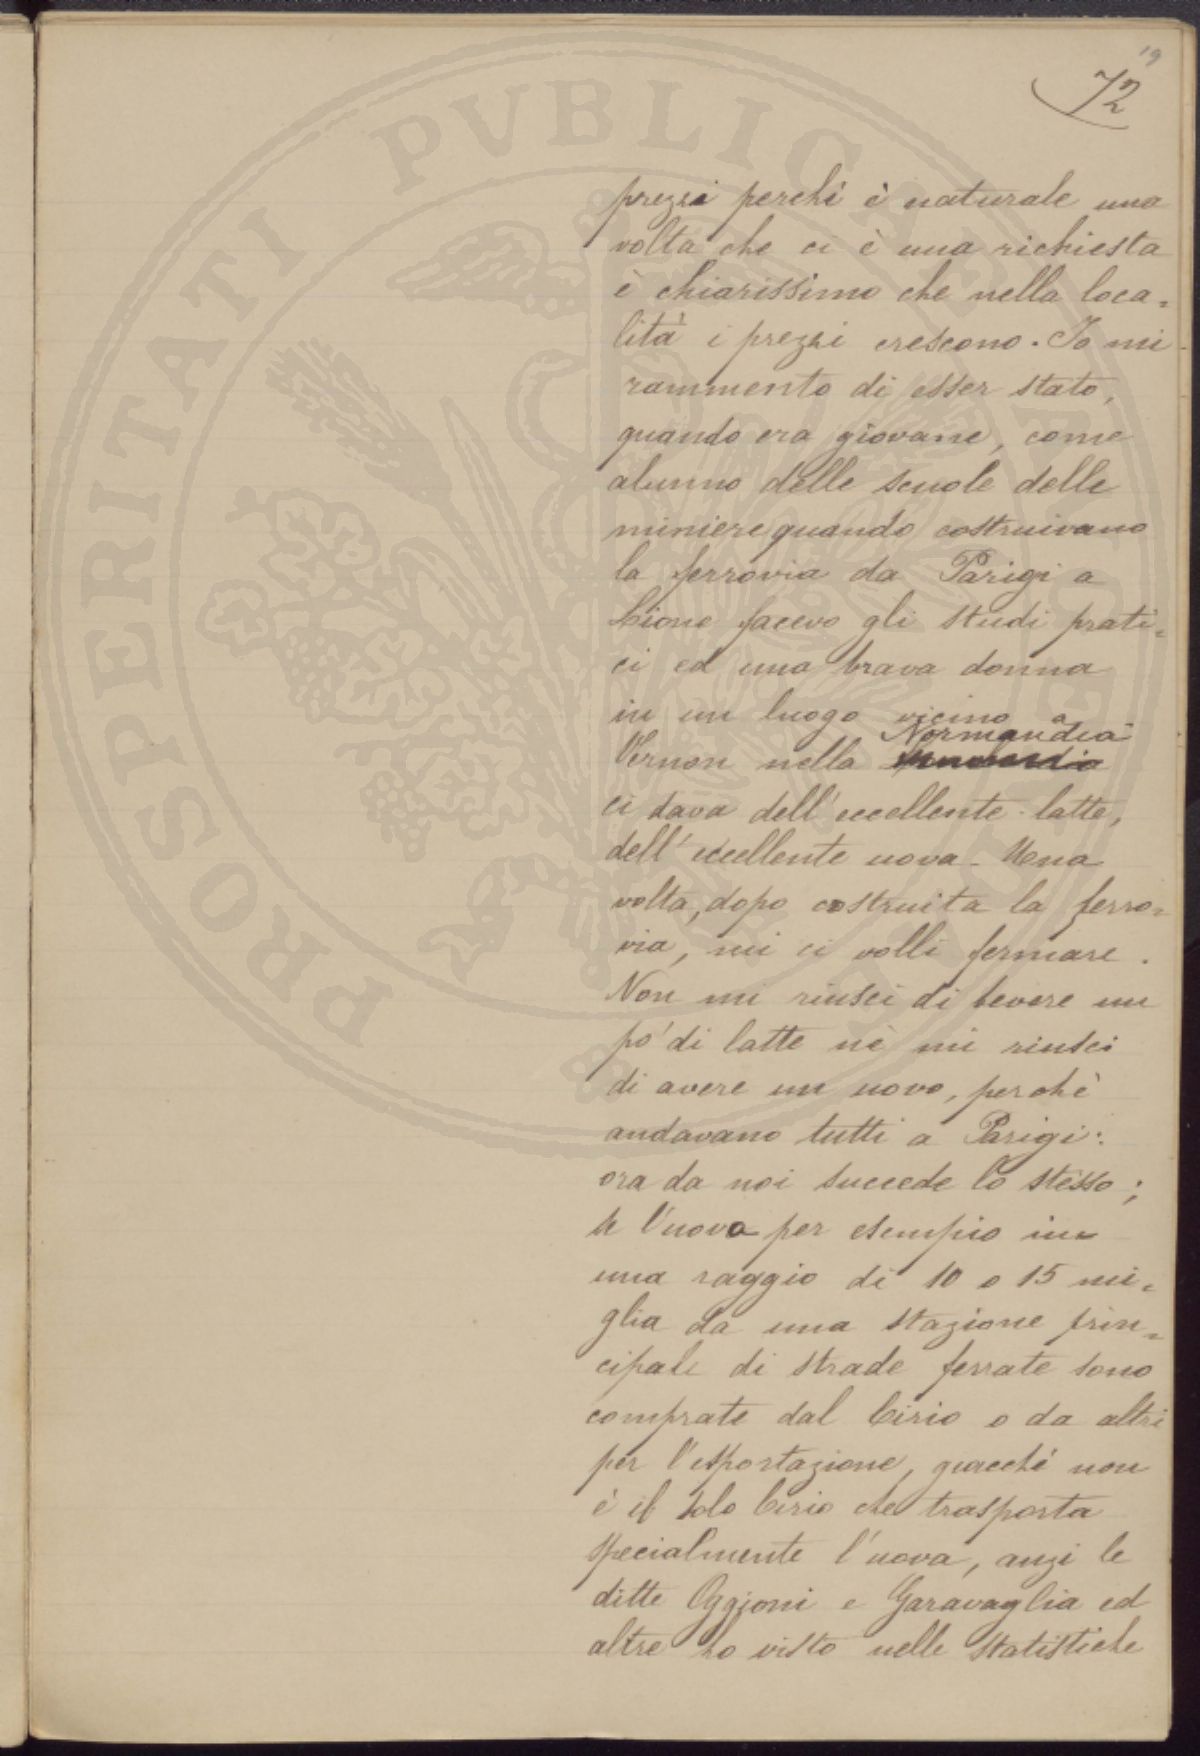 19
72
prezzi perchè è naturale una
volta che ci è una richiesta
è chiarissimo che nella loca=
lità i prezzi crescono. Io mi
rammento di esser stato,
quando era giovane, come
alunno delle scuole delle
miniere quando costruivano
la ferrovia da Parigi a
Lione facevo gli studi prati=
ci ed una brava donna
in un luogo vicino a
Normandia
Vernon nella
ci dava dell'eccellente latte,
dell'eccellente uova. Una
volta, dopo costruita la ferro=
via, mi ci volli fermare.
Non mi riusci di bevere un
po' di latte nè mi riusci
di avere un uovo, perchè
andavano tutti a Parigi:
ora da noi succede lo stesso;
le l'uova per esempio in
una raggio di 10 o 15 mi=
glia da una stazione prin=
cipale di strade ferrate sono
comprate dal Cirio o da altri
per l'esportazione, giacchè non
è il solo Cirio che trasporta
specialmente l'uova, anzi le
ditte Oggioni e Garavaglia ed
altre ho visto nelle statistiche
PROSPERITATI PVBLICAE AVGENDAE